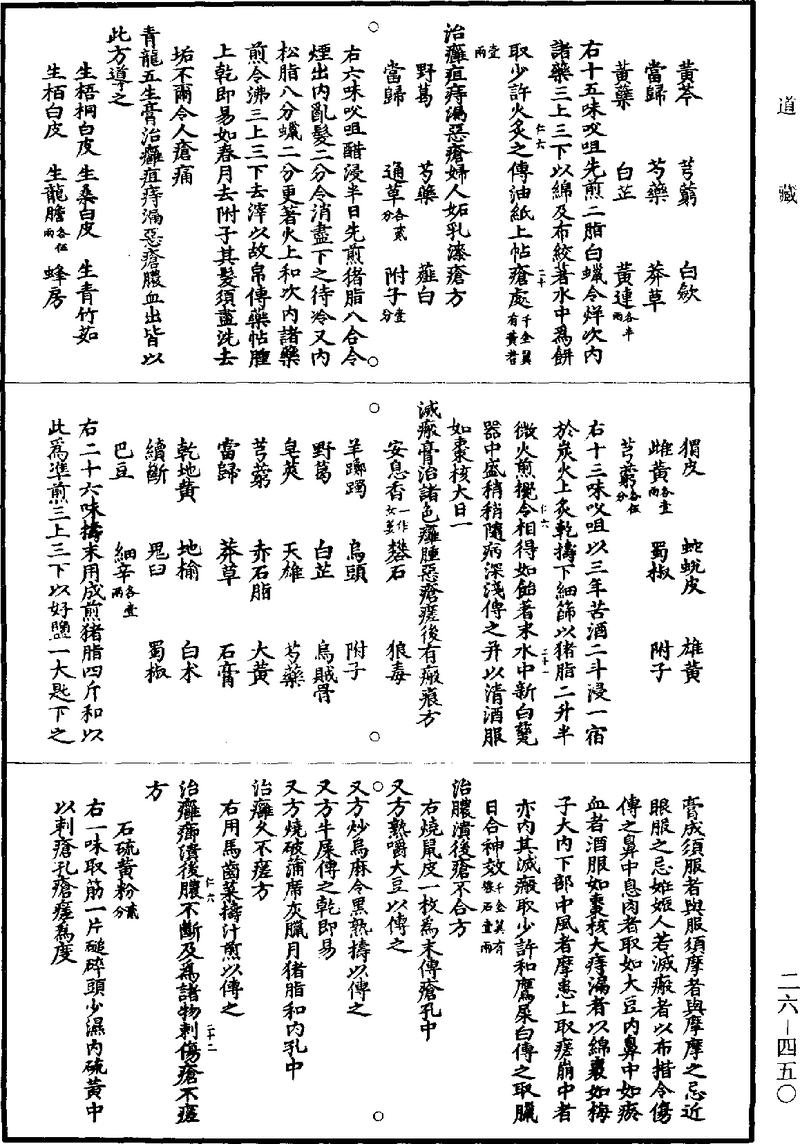 道藏
黃芩 芎藭 白斂
當歸 芍藥 莽草
黃蘗 白芷 黃連各半兩
右十五味㕮咀先煎二脂白蠟令烊次內
諸藥三上三下以綿及布絞著水中爲餅
取少許火炙之傅油紙上帖瘡處千金翼有黃耆壹兩
治癰疽痔漏惡瘡婦人妬乳漆瘡方
野葛 芍藥 薤白
當歸 通草各貳分 附子壹分
右六味㕮咀醋浸半日先煎猪脂八合令
煙出內亂髮二分令消盡下之待冷又內
松脂八分蠟二分更著火上和次內諸藥
煎令沸三上三下去滓以故帛傅藥帖腫
上乾即易如春月去附子其髮須盡洗去
垢不爾令人瘡痛
青龍五生膏治癰疽痔漏惡瘡膿血出皆以
此方導之
生梧桐白皮 生桑白皮 生青竹茹
生栢白皮 生龍膽各伍兩 蜂房
猬皮 蛇蛻皮 雄黃
雌黃各壹兩 蜀椒 附子
芎藭各伍分
右十三味㕮咀以三年苦酒二斗浸一宿
於炭火上炙乾擣下細篩以猪脂二升半
微火煎攪令相得如飴著末水中新白甆
器中盛稍稍隨病深淺傅之并以清酒服
如棗核大日一
滅瘢膏治諸色癰腫惡瘡瘥後有瘢痕方
安息香一作女萎 礬石 狼毒
羊躑躅 烏頭 附子
野葛 白芷 烏賊骨
皂莢 天雄 芍藥
芎藭 赤石脂 大黃
當歸 莽草 石膏
乾地黃 地榆 白朮
續斷 鬼臼 蜀椒
巴豆 細辛各壹兩
右二十六味擣末用成煎猪脂四斤和以
此爲準煎三上三下以好鹽一大匙下之
膏成須服者與服須摩者與摩摩之忌近
眼服之忌姙娠人若滅瘢者以布揩令傷
傅之鼻中息肉者取如大豆內鼻中如瘀
血者酒服如棗核大痔漏者以綿裹如梅
子大內下部中風者摩患上取瘥崩中者
亦內其滅瘢取少許和鷹屎白傅之取臘
日合神效千金翼有礬石壹兩
治膿潰後瘡不合方
右燒鼠皮一枚爲末傅瘡孔中
又方熟嚼大豆以傅之
又方炒烏麻令黑熟擣以傅之
又方牛屎傅之乾即易
又方燒破蒲席灰臘月猪脂和內孔中
治癰久不瘥方
右用馬齒菜擣汁煎以傅之
治癰癤潰後膿不斷及爲諸物刺傷瘡不瘥
方
石硫黃粉貳分
右一味取筋一片磓碎頭少濕內硫黃中
以刺瘡孔瘡瘥爲度
仁六
二十
仁六
二十一
仁六
二十二
二六－四五〇